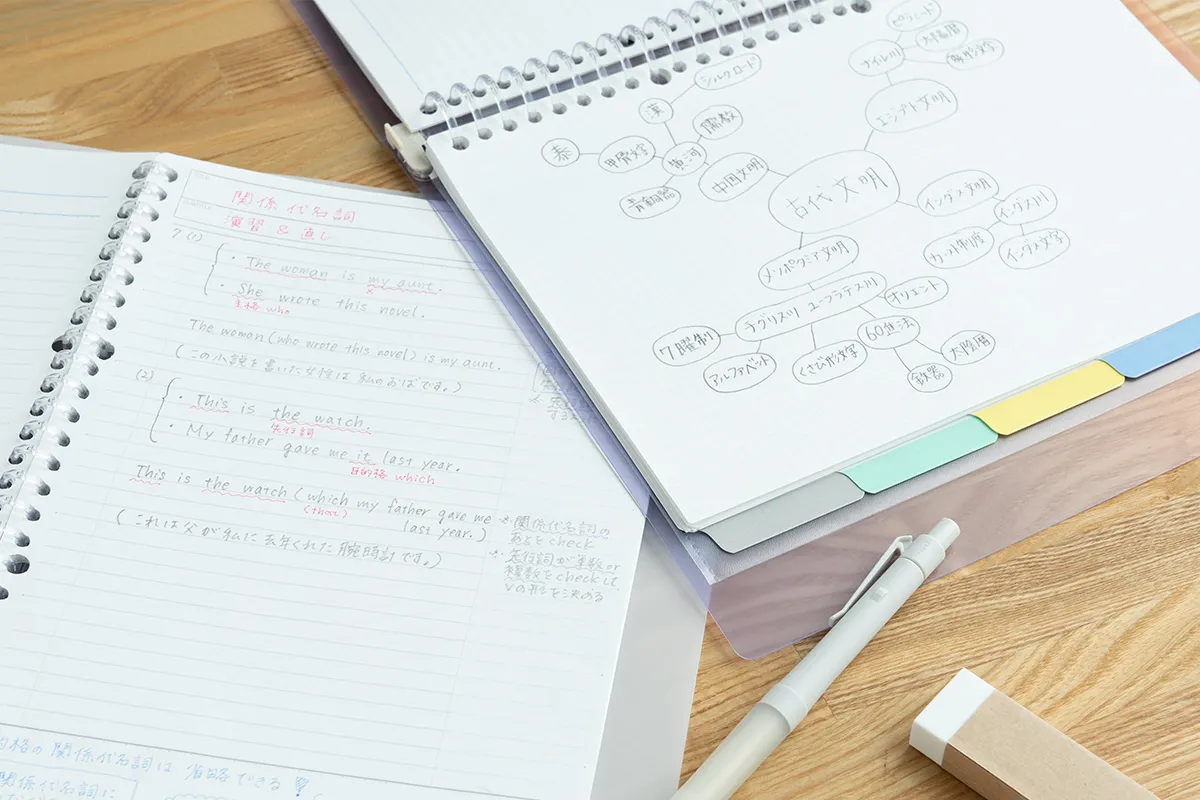 関係代名詞
演習 & 直し
7 (1)
・The woman is my aunt.
・She wrote this novel.
主格 who
The woman (who wrote this novel) is my aunt.
(この小説を書いた女性は私のおばです。)
(2)
・This is the watch.
先行詞
・My father gave me it last year.
目的格 which
This is the watch (which my father gave me
(that)
last year.)
(これは父が私に去年くれた腕時計です。)
※関係代名詞の
あとをcheck
先行詞が単数or
複数をcheckして
Vの形を決める
格の関係代名詞は 省略できる
関係代名詞に
古代文明
エジプト文明
ナイル川
ピラミッド
太陽暦
中国文明
黄河
儒教
漢
シルクロード
甲骨文字
泰
青銅器
インダス文明
インダス川
カースト制度
インダス文字
メソポタミア文明
チグリス川 ユーフラテス川
オリエント
60進法
太陰暦
鉄器
くさび形文字
アルファベット
7曜制